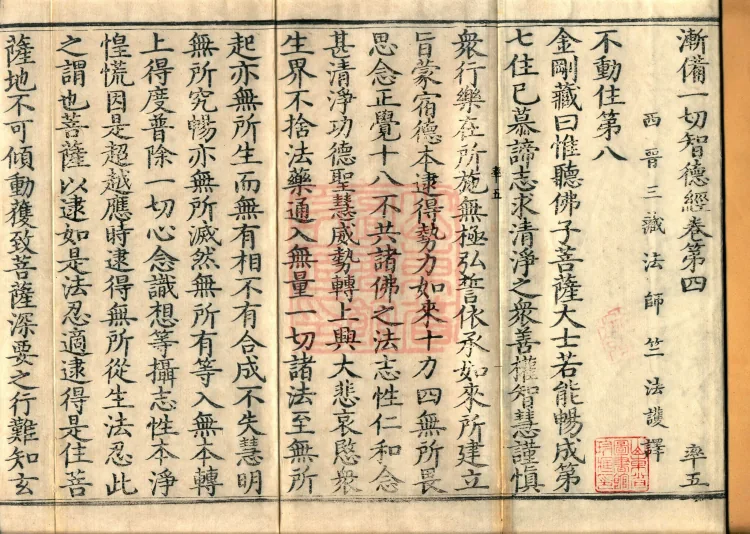 漸備一切智德經卷第四　率五
西晉三藏法師竺法護譯
不動住第八
金剛藏曰惟聽佛子菩薩大士若能暢成第
七住已慕諦志求清淨之衆善權智慧謹愼
率五
衆行樂在所施無極弘誓依承如來所建立
旨蒙宿德本逮得勢力如來十力四無所畏
思念正覺十八不共諸佛之法志性仁和念
甚清淨功德聖慧威勢轉上興大悲哀愍衆
生界不捨法藥通入無量一切諸法至無所
起亦無所生而無有相不有合成不失慧明
無所究暢亦無所滅然無所有等入無本轉
上得度普除一切心念識想等攝志性本淨
惶慌因是超越應時逮得無所從生法忍此
之謂也菩薩以逮如是法忍適逮得是住菩
薩地不可傾動蒦致菩薩深要之行難知玄